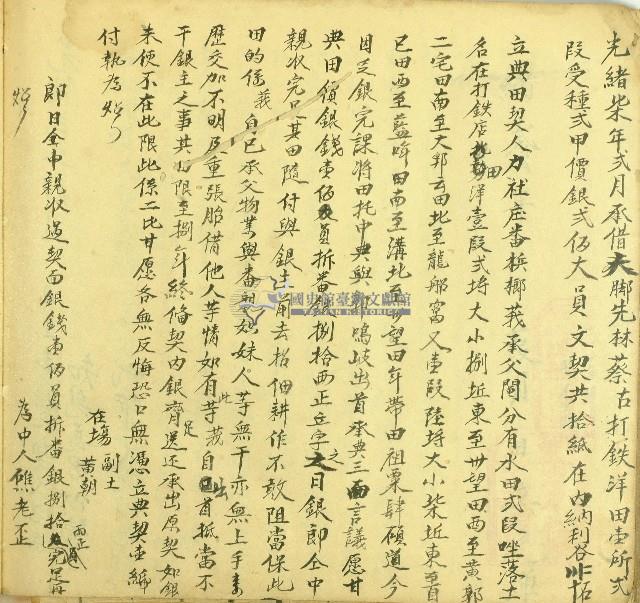 光緒柒年弍月承借大脚先林蔡古打鉄洋田壹所弍
段受種弍甲價銀弍佰大員文契共拾紙在內納利谷
立典田契人力社庄番檳榔莪承父鬮分有水田弍段唑落土
名在打鉄店田洋壹段弍坵大小捌坵東至世望田西至黃郭
二宅田南至大邦云田北至龍船窩又壹段陸坵大小柴坵東至首
巳田西至藍哖田南至溝北至世望田年帶田租粟肆碩道今
因乏銀完課將田托中典與郭鳴岐出首承典三面言議愿甘
典田價銀錢壹佰員拆番銀捌拾西正立字之日銀即仝中
親收完足其田隨付與銀主前去招佃耕作不敢阻當保此
田的係莪自己承父物業與番親姐妹人等無干亦無上手
歷交加不明及重張胎借他人等情如有此等莪自出首抵當不
干銀主之事其田限至捌年終備契內銀齊足送还承出原契如銀
未便不在此限此係二比甘愿各無反悔恐口無憑立典契壹紙
付執為炤
在塲 副土 黃朝
即日仝中親收過契面銀錢壹佰員拆番銀捌拾兩正完足再
炤
為中人 礁老歪
國史館臺灣文獻館
TAIWAN HISTORICA